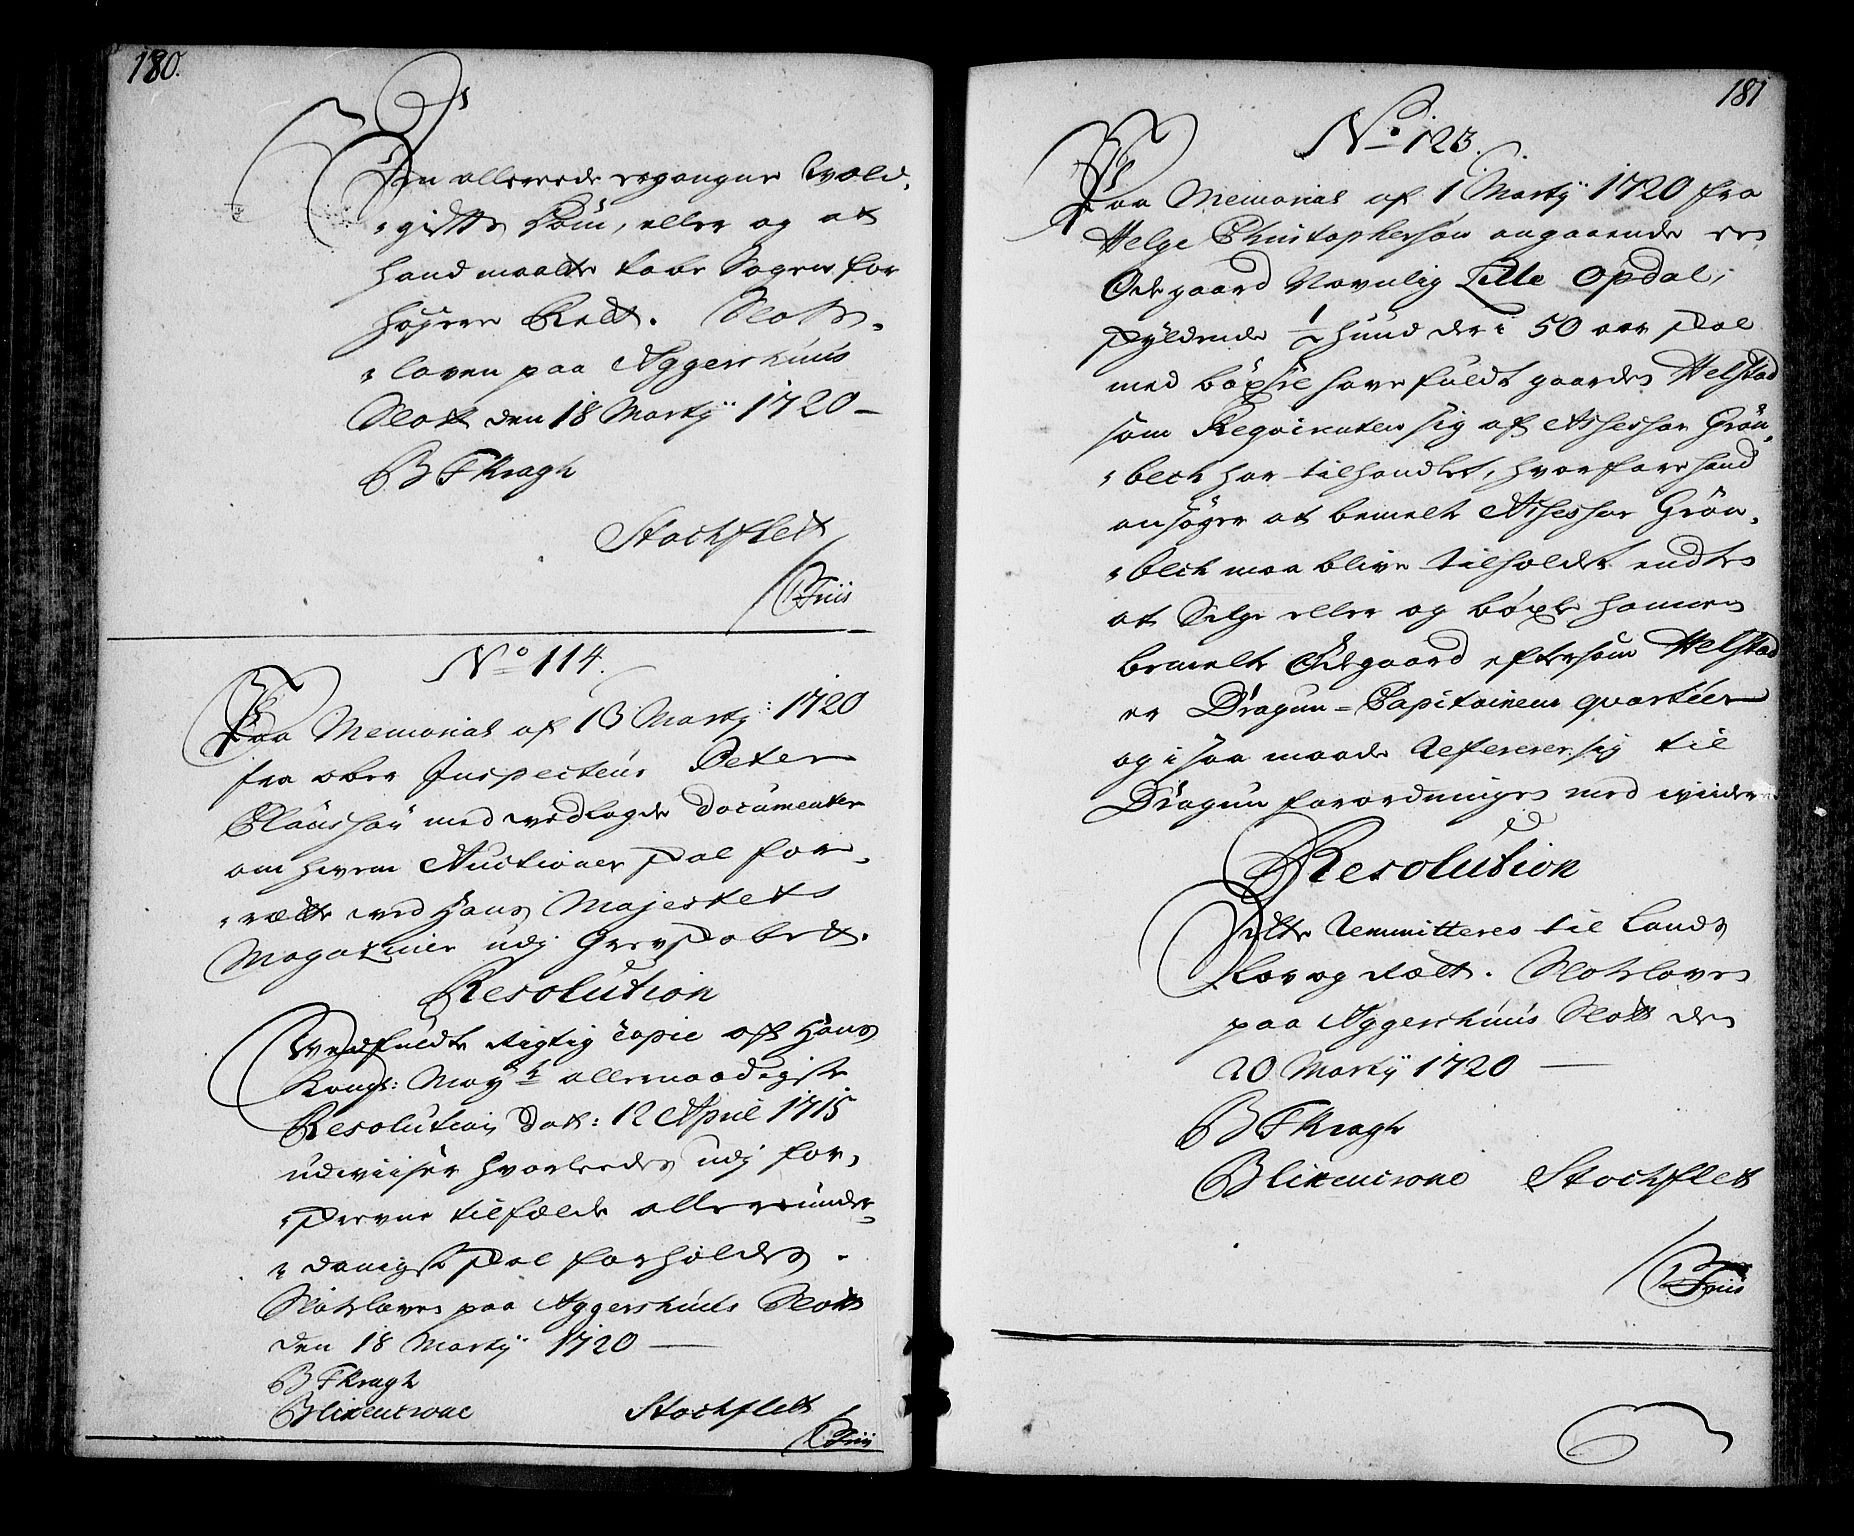 180.
Den allereede ergangne Vold-
-gifts Dom, eller og at
hand maatte tabe Sagen for
høyere Rett. Slotz-
-loven paa Aggershuus
Slott den 18 Martij 1720 -
B F Kragh
Stochflett
Friis
No 114.
Paa Memorial af 13 Martij: 1720
fra ober Inspecteur Peter
Claussøn med vedlagde Documenter
om hvem Auctioner skal for-
-rætte ved Hans Majestets
Magaziner udj Grevskabet.
Resolution
Vedfuldte rigtig Copie aff Hans
Kongl: May.t allernaadigste
Resolution Dat: 12 April 1715
udwiiser hvorleedes udj for-
-skrevne tilfælde allerunder-
-danigst skal forholdes.
Slotzloven paa Aggershuus Slott
den 18 Martij 1720 —
B F Kragh
Blixencrone Stochflett
Friis
181
No 123.
Paa Memorial af 1 Martij 1720 fra
Helge Christophersøn angaaende een
Ødegaard Navnlig Lille Opdal,
skyldende 1/2 hund der i 50 aar skal
med bøxle have fuldt gaarden Helstad
som Reqvirenten sig af Assessor Grøn-
-bech har tilhandlet, hvorfore hand
ansøger at bemelte Assessor Grøn-
-bech maa blive tilholdet endten
at Selge eller og bøxle hannem
bemelte Ødegaard eftersom Helstad
er Dragun-Capitainens quarteer
og i saa maade Refererer sig til
Dragun forordningen med widere
Resolution
Dette Remmitteres til Lands
Lov og Rætt. Slotzloven
paa Aggershuus Slott den
20 Martij 1720 —
B F Kragh
Blixencrone Stochflett
Friis